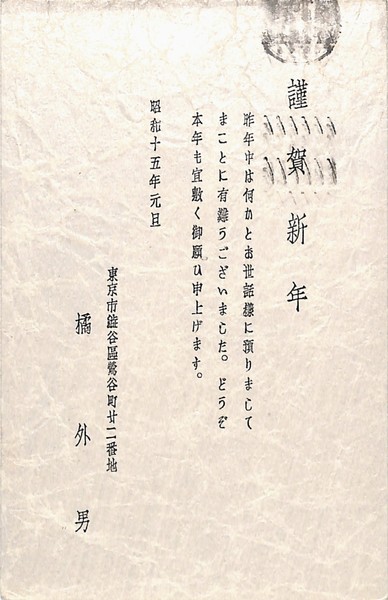 謹賀新年
昨年中は何かとお世話樣に預りまして
まことに有難うございました。どうぞ
本年も宜敷く御願ひ申上げます。
昭和十五年元旦
東京市澁谷區鶯谷町廿二番地
橘外男